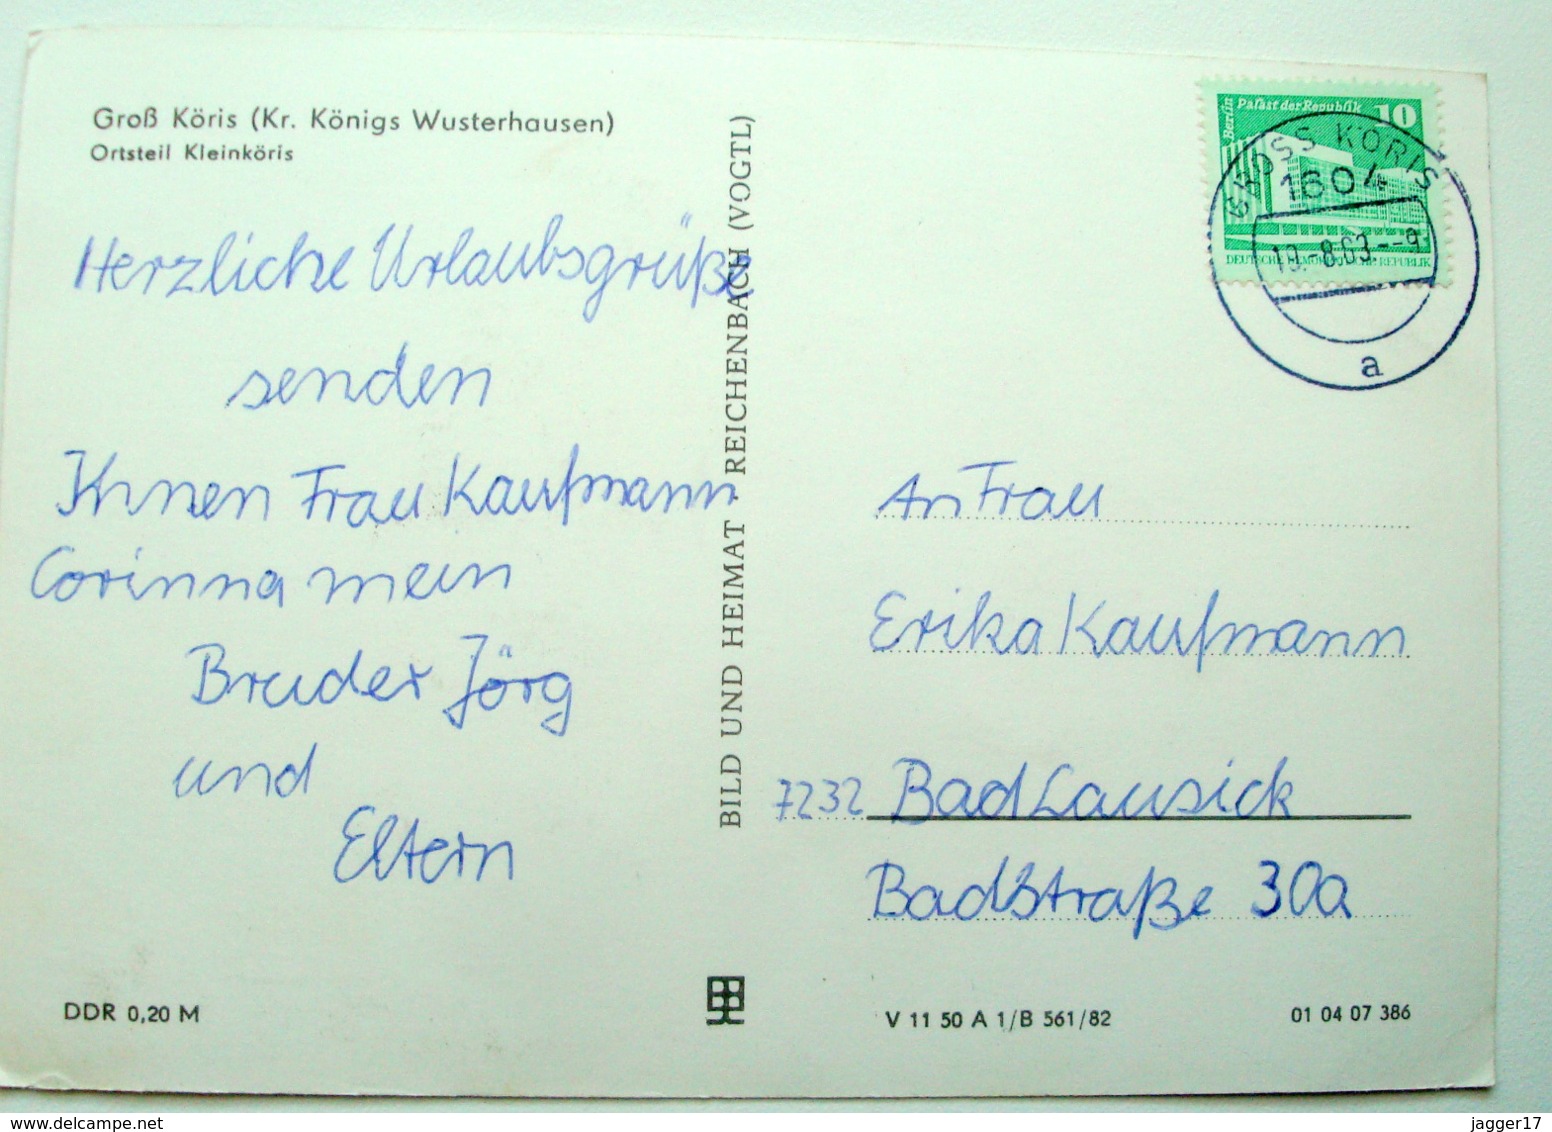 Groß Köris (Kr. Königs Wusterhausen)
Ortsteil Kleinköris
Herzliche Urlaubsgrüße
senden
Ihnen Frau Kaufmann
Corinna mein
Bruder Jörg
und
Eltern
DDR 0,20 M
BILD UND HEIMAT REICHENBACH (VOGTL)
Berlin
Palast der Republik
10
DEUTSCHE DEMOKRATISCHE REPUBLIK
GROSS KÖRIS
1604
a
An Frau
Erika Kaufmann
7232 Bad Lausick
Badstraße 30a
V 11 50 A 1/B 561/82
01 04 07 386
delcampe.net
jagger17